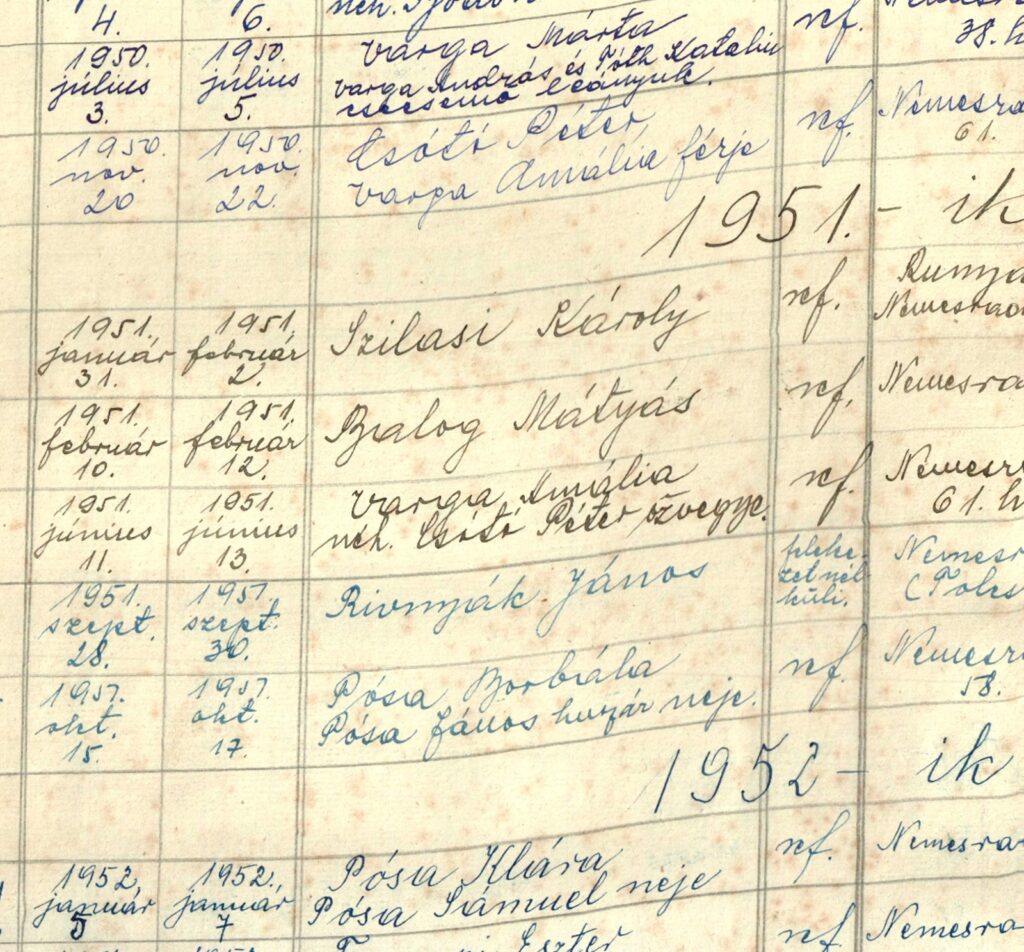 4.
6.
neh.
ref.
38. h
1950.
július
3.
1950.
július
5.
Varga Márta
Varga András és Tóth Katalin
csecsemő leányuk.
1950.
nov.
20
1950.
nov.
22.
Csótó Péter,
Varga Amália férje
ref.
Nemesra
61.
1951. - ik
1951.
január
31.
1951.
február
2.
Szilasi Károly
ref.
Runya
Nemesrad
1951.
február
10.
1951.
február
12.
Balog Mátyás
ref.
Nemesra
1951.
június
11.
1951.
június
13.
Varga Amália
néh. Csótó Péter özvegye.
ref.
Nemesr
61. h
1951.
szept.
28.
1951.
szept.
30.
Rivnyák János
feleke-
zet nél-
küli.
Nemesr
(Tolcs
1951.
okt.
15.
1951.
okt.
17.
Pósa Borbála
Pósa János huszár neje.
ref.
Nemesr
58.
1952 - ik
1952.
január
5
1952.
január
7
Pósa Klára
Pósa Sámuel neje
ref.
Nemesra
Eszter
ref
Nemesra